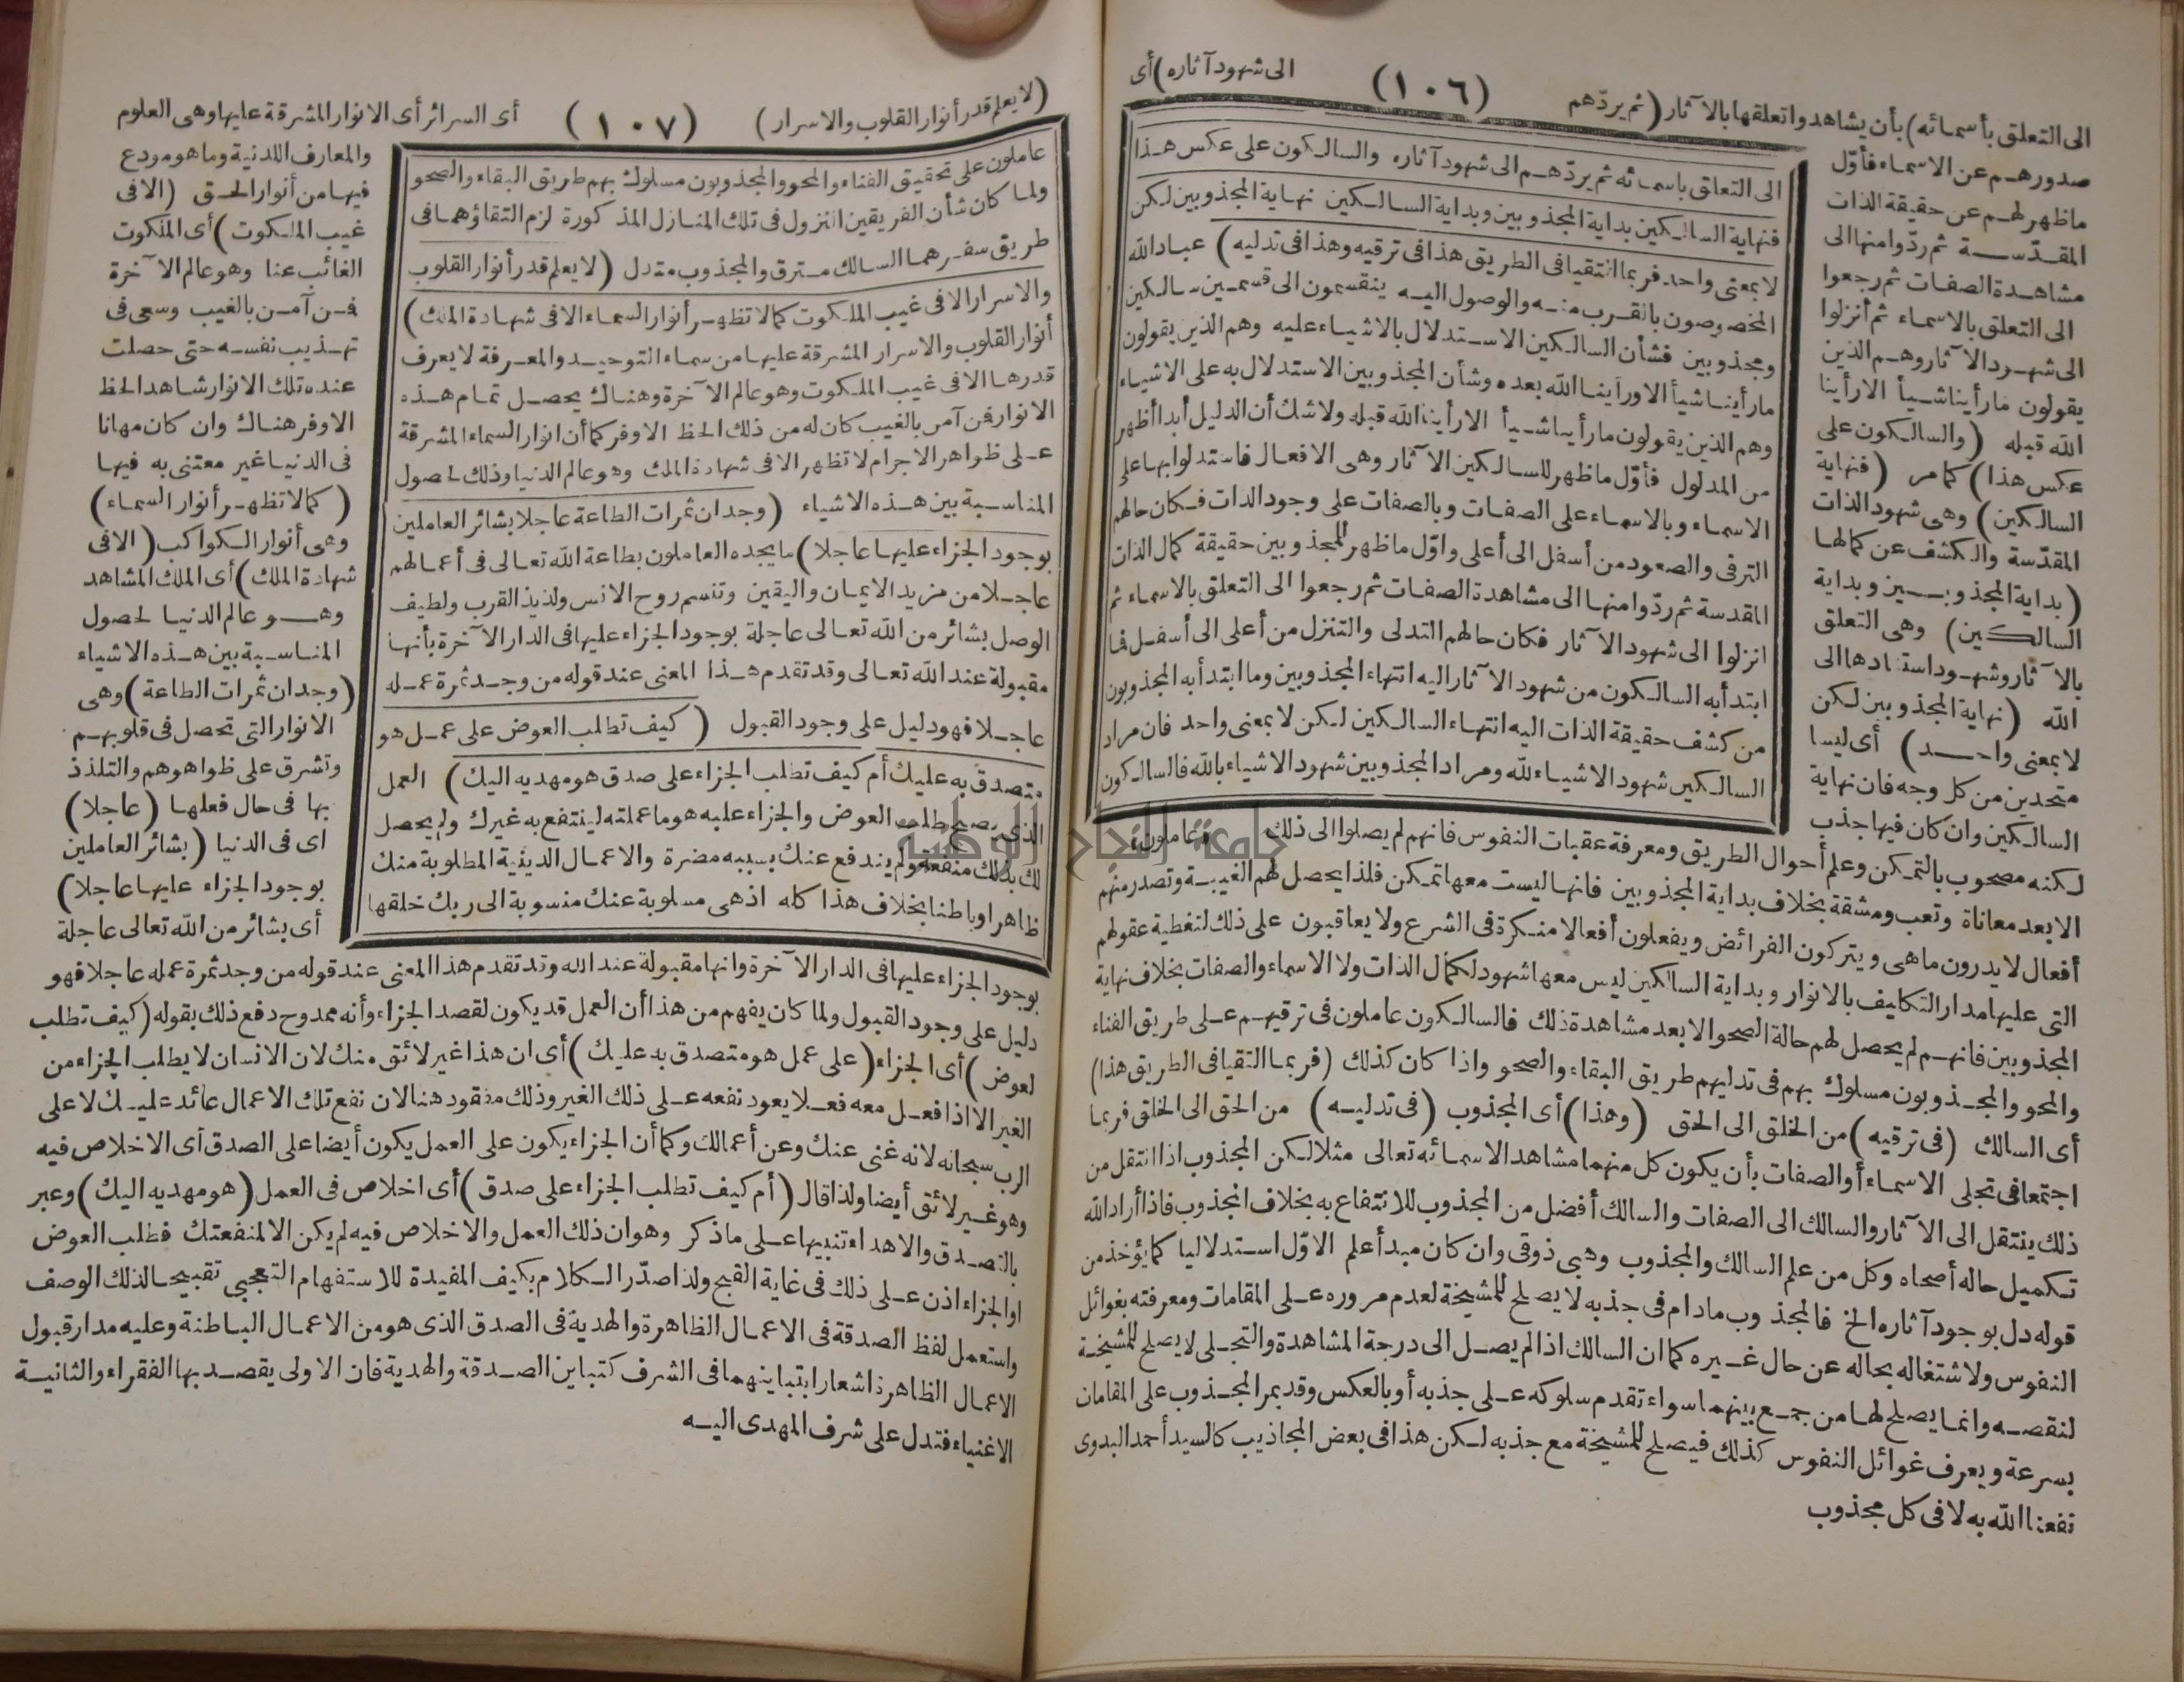 الى التعلق بأسمائه) بأن يشاهدوا تعلقها بالآثار (ثم يردّهم
(١٠٦)
الى شهود آثاره) أى
صدورهم عن الاسماء فأوّل
ماظهر لهم عن حقيقة الذات
المقدّسة ثم ردّوا منها الى
مشاهدة الصفات ثم رجعوا
الى التعلق بالاسماء ثم أنزلوا
الى شهود الآثار وهم الذين
يقولون مارأينا شيأ الا رأينا
الله قبله (والسالكون على
عكس هذا) كما مر (فنهاية
السالكين) وهى شهود الذات
المقدّسة والكشف عن كمالها
(بداية المجذوبين وبداية
السالكين) وهى التعلق
بالآثار وشهود استنادها الى
الله (نهاية المجذوبين لكن
لا بمعنى واحد) أى ليسا
متحدين من كل وجه فان نهاية
السالكين وان كان فيها جذب
الى التعلق باسمائه ثم يردّهم الى شهود آثاره والسالكون على عكس هذا
فنهاية السالكين بداية المجذوبين وبداية السالكين نهاية المجذوبين لكن
لا بمعنى واحد فربما التقيا فى الطريق هذا فى ترقيه وهذا فى تدليه) عباد الله
المخصوصون بالقرب منه والوصول اليه ينقسمون الى قسمين سالكين
ومجذوبين فشأن السالكين الاستدلال بالاشياء عليه وهم الذين يقولون
مارأينا شيأ الا ورأينا الله بعده وشأن المجذوبين الاستدلال به على الاشياء
وهم الذين يقولون مارأينا شيأ الا رأينا الله قبله ولا شك أن الدليل أبدا أظهر
من المدلول فأوّل ماظهر للسالكين الآثار وهى الافعال فاستدلوا بها على
الاسماء وبالاسماء على الصفات وبالصفات على وجود الذات فكان حالهم
الترقى والصعود من أسفل الى أعلى واوّل ماظهر للمجذوبين حقيقة كمال الذات
المقدسة ثم ردّوا منها الى مشاهدة الصفات ثم رجعوا الى التعلق بالاسماء ثم
انزلوا الى شهود الآثار فكان حالهم التدلى والتنزل من أعلى الى أسفل فما
ابتدأ به السالكون من شهود الآثار اليه انتهاء المجذوبين وما ابتدأ به المجذوبون
من كشف حقيقة الذات اليه انتهاء السالكين لكن لا بمعنى واحد فان مراد
السالكين شهود الاشياء لله ومراد المجذوبين شهود الاشياء بالله فالسالكون
عاملون
لكنه مصحوب بالتمكن وعلم أحوال الطريق ومعرفة عقبات النفوس فانهم لم يصلوا الى ذلك
الا بعد معاناة وتعب ومشقة بخلاف بداية المجذوبين فانها ليست معها تمكن فلذا يحصل لهم الغيبة وتصدر منهم
أفعال لا يدرون ماهى ويتركون الفرائض ويفعلون أفعالا منكرة فى الشرع ولا يعاقبون على ذلك لتغطية عقولهم
التى عليها مدار التكاليف بالانوار وبداية السالكين ليس معها شهود لكمال الذات ولا الاسماء والصفات بخلاف نهاية
المجذوبين فانهم لم يحصل لهم حالة الصحو الا بعد مشاهدة ذلك فالسالكون عاملون فى ترقيهم على طريق الفناء
والمحو والمجذوبون مسلوك بهم فى تدليهم طريق البقاء والصحو واذا كان كذلك (فربما التقيا فى الطريق هذا)
أى السالك (فى ترقيه) من الخلق الى الحق (وهذا) أى المجذوب (فى تدليه) من الحق الى الخلق فربما
اجتمعا فى تجلى الاسماء أو الصفات بأن يكون كل منهما مشاهدا لاسمائه تعالى مثلا لكن المجذوب اذا انتقل من
ذلك ينتقل الى الآثار والسالك الى الصفات والسالك أفضل من المجذوب للانتفاع به بخلاف المجذوب فاذا أراد الله
تكميل حاله أصحاه وكل من علم السالك والمجذوب وهبى ذوقى وان كان مبدأ علم الاوّل استدلاليا كما يؤخذ من
قوله دل بوجود آثاره الخ فالمجذوب مادام فى جذبه لا يصلح للمشيخة لعدم مروره على المقامات ومعرفته بغوائل
النفوس ولاشتغاله بحاله عن حال غيره كما ان السالك اذا لم يصل الى درجة المشاهدة والتجلى لا يصلح للمشيخة
لنقصه وانما يصلح لها من جمع بينهما سواء تقدم سلوكه على جذبه أو بالعكس وقد يمر المجذوب على المقامات
بسرعة ويعرف غوائل النفوس كذلك فيصلح للمشيخة مع جذبه لكن هذا فى بعض المجاذيب كالسيد أحمد البدوى
نفعنا الله به لا فى كل مجذوب
(لا يعلم قدر أنوار القلوب والاسرار)
(١٠٧)
أى السرائر أى الانوار المشرقة عليها وهى العلوم
عاملون على تحقيق الفناء والمحو والمجذوبون مسلوك بهم طريق البقاء والصحو
ولما كان شأن الفريقين النزول فى تلك المنازل المذكورة لزم التقاؤهما فى
طريق سفرهما السالك مترق والمجذوب متدل (لا يعلم قدر أنوار القلوب
والاسرار الا فى غيب الملكوت كما لا تظهر أنوار السماء الا فى شهادة الملك)
أنوار القلوب والاسرار المشرقة عليها من سماء التوحيد والمعرفة لا يعرف
قدرها الا فى غيب الملكوت وهو عالم الآخرة وهناك يحصل تمام هذه
الانوار فمن آمن بالغيب كان له من ذلك الحظ الاوفر كما أن انوار السماء المشرقة
على ظواهر الاجرام لا تظهر الا فى شهادة الملك وهو عالم الدنيا وذلك لحصول
المناسبة بين هذه الاشياء (وجدان ثمرات الطاعة عاجلا بشائر العاملين
بوجود الجزاء عليها عاجلا) ما يجده العاملون بطاعة الله تعالى فى أعمالهم
عاجلا من مزيد الايمان واليقين وتنسم روح الانس ولذيذ القرب ولطيف
الوصل بشائر من الله تعالى عاجلة بوجود الجزاء عليها فى الدار الآخرة بأنها
مقبولة عند الله تعالى وقد تقدم هذا المعنى عند قوله من وجد ثمرة عمله
عاجلا فهو دليل على وجود القبول (كيف تطلب العوض على عمل هو
متصدق به عليك أم كيف تطلب الجزاء على صدق هو مهديه اليك) العمل
الذى يصح طلب العوض والجزاء عليه هو ما عملته لينتفع به غيرك ولم يحصل
لك بذلك منفعة ولم يندفع عنك بسببه مضرة والاعمال الدينية المطلوبة منك
ظاهرا وباطنا بخلاف هذا كله اذ هى مسلوبة عنك منسوبة الى ربك خلقها
والمعارف اللدنية وما هو مودع
فيها من أنوار الحق (الا فى
غيب الملكوت) أى الملكوت
الغائب عنا وهو عالم الآخرة
فمن آمن بالغيب وسعى فى
تهذيب نفسه حتى حصلت
عنده تلك الانوار شاهد الحظ
الاوفر هناك وان كان مهانا
فى الدنيا غير معتنى به فيها
(كما لا تظهر أنوار السماء)
وهى أنوار الكواكب (الا فى
شهادة الملك) أى الملك المشاهد
وهو عالم الدنيا لحصول
المناسبة بين هذه الاشياء
(وجدان ثمرات الطاعة) وهى
الانوار التى تحصل فى قلوبهم
وتشرق على ظواهرهم والتلذذ
بها فى حال فعلها (عاجلا)
اى فى الدنيا (بشائر العاملين
بوجود الجزاء عليها عاجلا)
أى بشائر من الله تعالى عاجلة
بوجود الجزاء عليها فى الدار الآخرة وانها مقبولة عند الله وقد تقدم هذا المعنى عند قوله من وجد ثمرة عمله عاجلا فهو
دليل على وجود القبول ولما كان يفهم من هذا أن العمل قد يكون لقصد الجزاء وأنه ممدوح دفع ذلك بقوله (كيف تطلب
لعوض) أى الجزاء (على عمل هو متصدق به عليك) أى ان هذا غير لائق منك لان الانسان لا يطلب الجزاء من
الغير الا اذا فعل معه فعلا يعود نفعه على ذلك الغير وذلك مفقود هنا لان نفع تلك الاعمال عائد عليك لا على
الرب سبحانه لانه غنى عنك وعن أعمالك وكما أن الجزاء يكون على العمل يكون أيضا على الصدق أى الاخلاص فيه
وهو غير لائق أيضا ولذا قال (أم كيف تطلب الجزاء على صدق) أى اخلاص فى العمل (هو مهديه اليك) وعبر
بالتصدق والاهداء تنبيها على ما ذكر وهو ان ذلك العمل والاخلاص فيه لم يكن الا لمنفعتك فطلب العوض
او الجزاء اذن على ذلك فى غاية القبح ولذا صدّر الكلام بكيف المفيدة للاستفهام التعجبى تقبيحا لذلك الوصف
واستعمل لفظ الصدقة فى الاعمال الظاهرة والهدية فى الصدق الذى هو من الاعمال الباطنة وعليه مدار قبول
الاعمال الظاهرة اشعارا بتباينهما فى الشرف كتباين الصدقة والهدية فان الاولى يقصد بها الفقراء والثانية
الاغنياء فتدل على شرف المهدى اليه
جامعة النجاح الوطنية